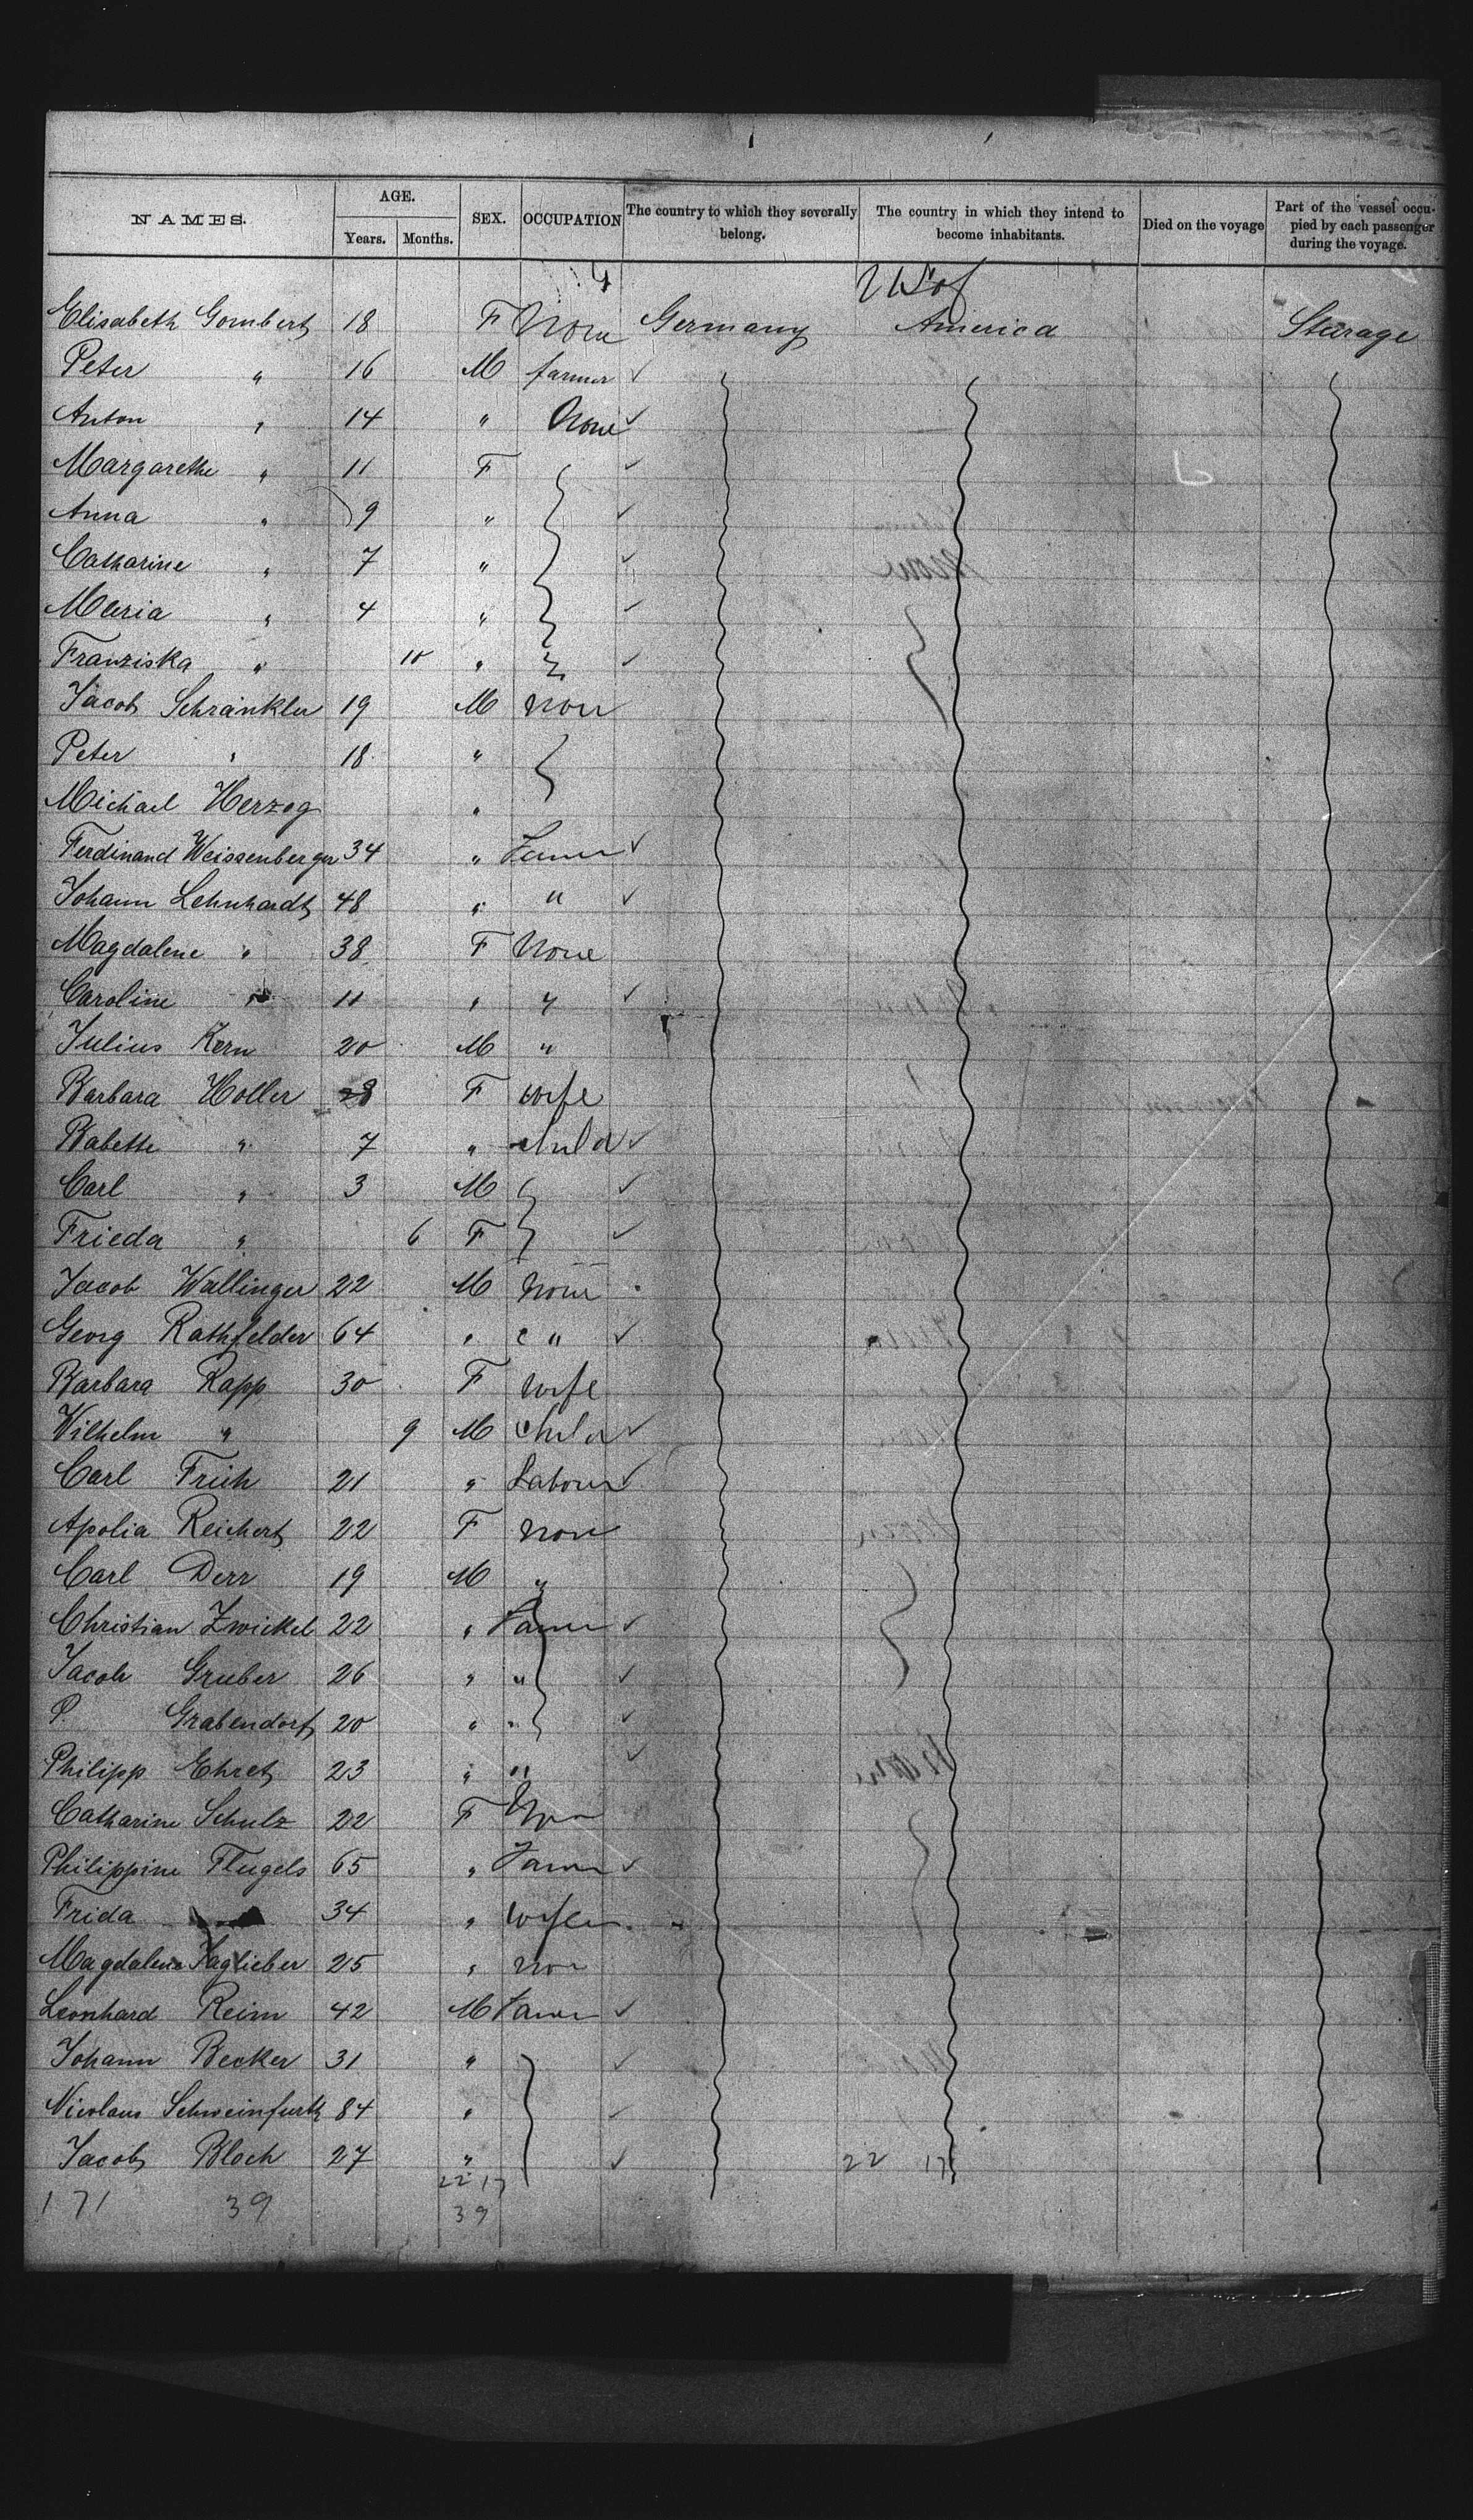 NAMES. AGE. SEX. OCCUPATION The country to which they severally belong. The country in which they intend to become inhabitants. Died on the voyage Part of the vessel occupied by each passenger during the voyage.
Years. Months.
U S of
Elisabeth Gombert 18 F None Germany America Sturage
Peter " 16 M farmer ✓
Anton " 14 " None ✓
Margarethe " 11 F ✓
Anna " 9 " ✓
Catharine " 7 " ✓
Maria " 4 " ✓
Franziska " 10 " ✓
Jacob Schränkler 19 M None
Peter " 18 "
Michael Herzog "
Ferdinand Weissenberger 34 " Farmer ✓
Johann Lehnhardt 48 " " ✓
Magdalene " 38 F None
Caroline " 11 " " ✓
Julius Kern 20 M "
Barbara Holler 28 F wife
Babette " 7 " child ✓
Carl " 3 M ✓
Frieda " 6 F ✓
Jacob Wallinger 22 M None
Georg Rathfelder 64 " " ✓
Barbara Rapp 30 F wife
Wilhelm " 9 M child ✓
Carl Früh 21 " Labour ✓
Apolia Reichert 22 F None
Carl Derr 19 M "
Christian Zwickel 22 " Farmer ✓
Jacob Gruber 26 " " ✓
P. Grabendorf 20 " " ✓
Philipp Ehret 23 " " ✓
Catharine Schulz 22 F None
Philippine Flugels 65 " Farmer ✓
Frida 34 " wife
Magdalena Jaglieber 25 " None
Leonhard Reim 42 M Farmer ✓
Johann Becker 31 " ✓
Nicolaus Schweinfurth 84 " ✓
Jacob Bloch 27 " ✓ 22 17
22 17
171 39 39